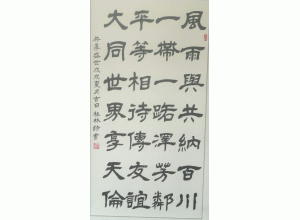 風雨與共納百川
一帶一路澤芳鄰
平等相待傳友誼
大同世界享天倫